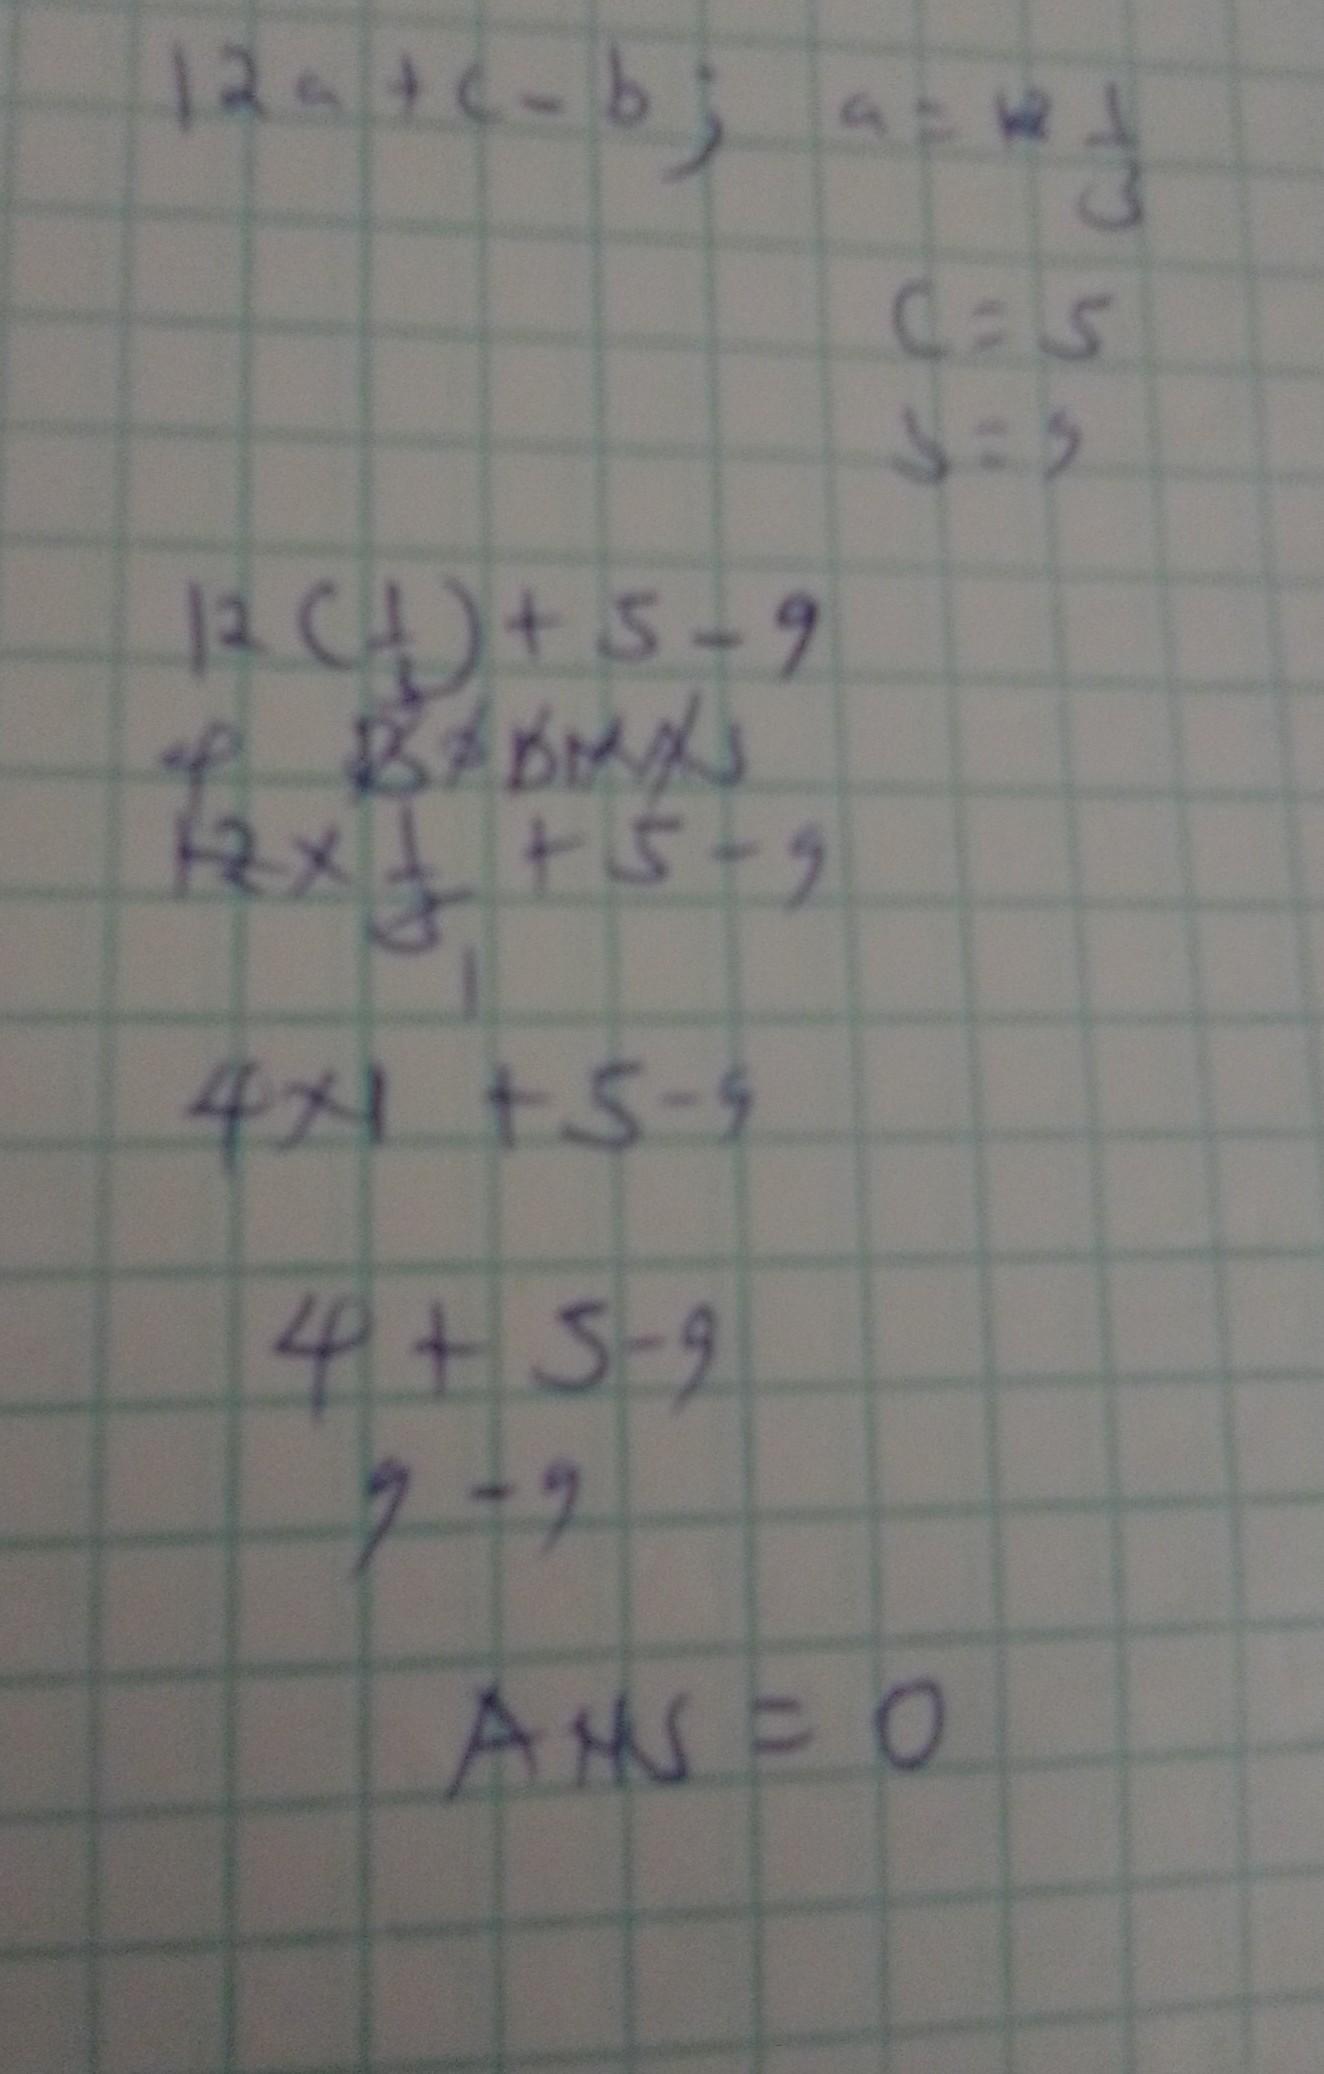 12a + c - b; a = 1/3
c = 5
b = 9
12 (1/3) + 5 - 9
4
12 x 1/3 + 5 - 9
1
4 x 1 + 5 - 9
4 + 5 - 9
9 - 9
ANS = 0